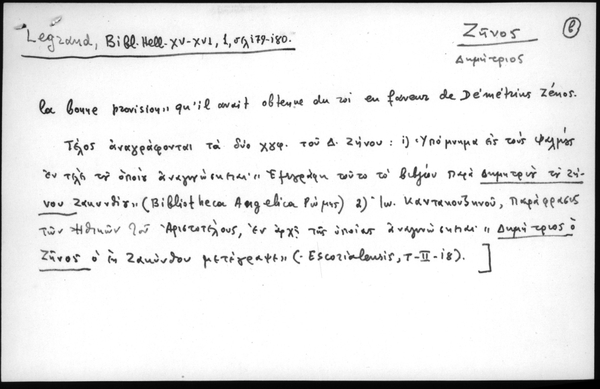 Legrand, Bibl. Hell. XV-XVI, 1, σελ 179-180.
Ζῆνος
Δημήτριος
β
la bonne provision» qu'il avait obtenue du roi en faveur de Démétrius Zénos.
Τέλος ἀναγράφονται τὰ δύο χγφ. τοῦ Δ. Ζήνου: 1) Ὑπόμνημα εἰς τοὺς ψαλμοὺς
ἐν τέλει τοῦ ὁποίου ἀναγινώσκεται «Ἐγράφη τοῦτο τὸ βιβλίον παρὰ Δημητρίου τοῦ Ζή-
νου Ζακυνθίου» (Bibliotheca Angelica Ρώμης) 2) Ἰω. Καντακουζηνοῦ, Παράφρασις
τῶν Ἠθικῶν τοῦ Ἀριστοτέλους, ἐν ἀρχῇ τῆς ὁποίας ἀναγινώσκεται «Δημήτριος ὁ
Ζῆνος ὁ ἐκ Ζακύνθου μετέγραψε» (Escorialensis, T-II-18).]